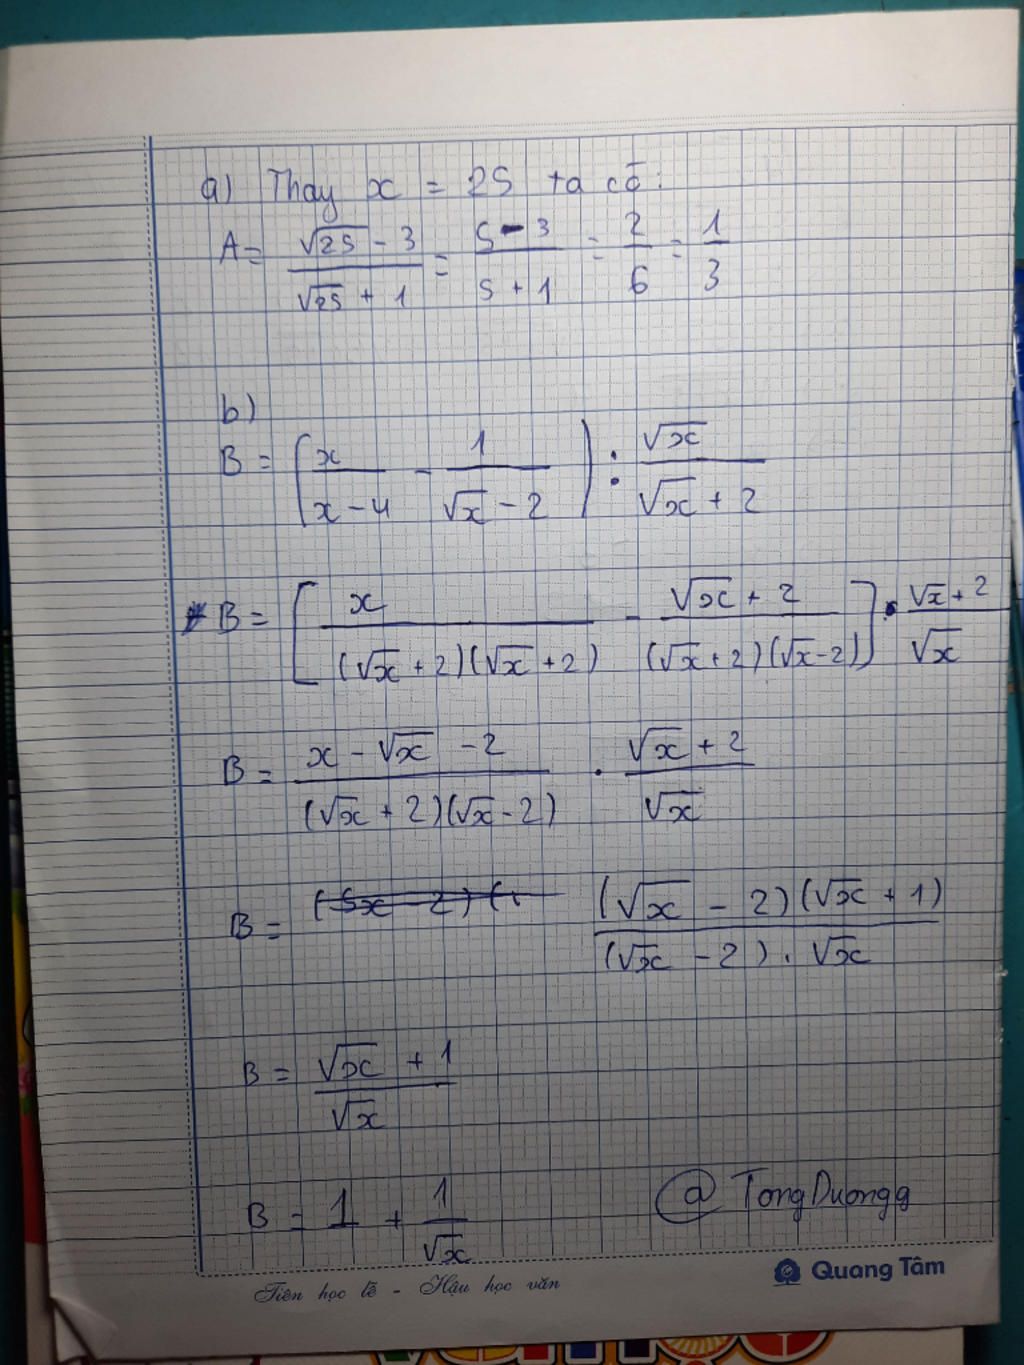 a) Thay x = 25 ta có:
A = (√25 - 3)/(√25 + 1) = (5 - 3)/(5 + 1) = 2/6 = 1/3
b)
B = (x/(x - 4) - 1/(√x - 2)) : √x/(√x + 2)
B = [x/((√x + 2)(√x + 2)) - (√x + 2)/((√x + 2)(√x - 2))] . (√x + 2)/√x
B = (x - √x - 2)/((√x + 2)(√x - 2)) . (√x + 2)/√x
B = ((√x - 2)(√x + 1))/((√x - 2) . √x)
B = (√x + 1)/√x
B = 1 + 1/√x
@ TongDuongg
Quang Tâm
Tiên học lễ - Hậu học văn